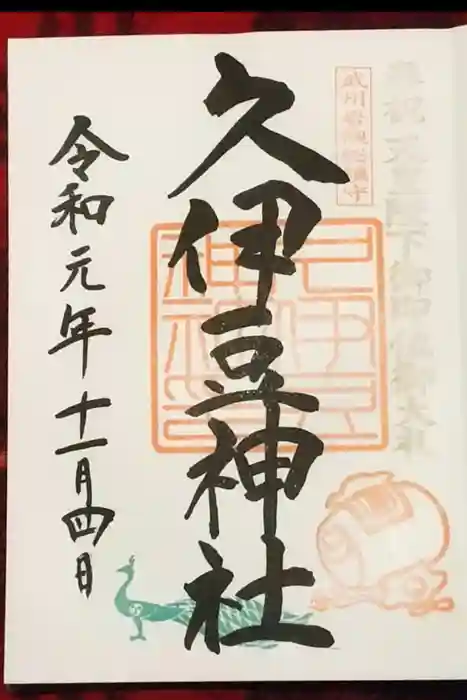 奉祝天皇陛下御即位御大典
武州岩槻総鎮守
久伊豆神社
久伊豆
神社印
令和元年十一月四日